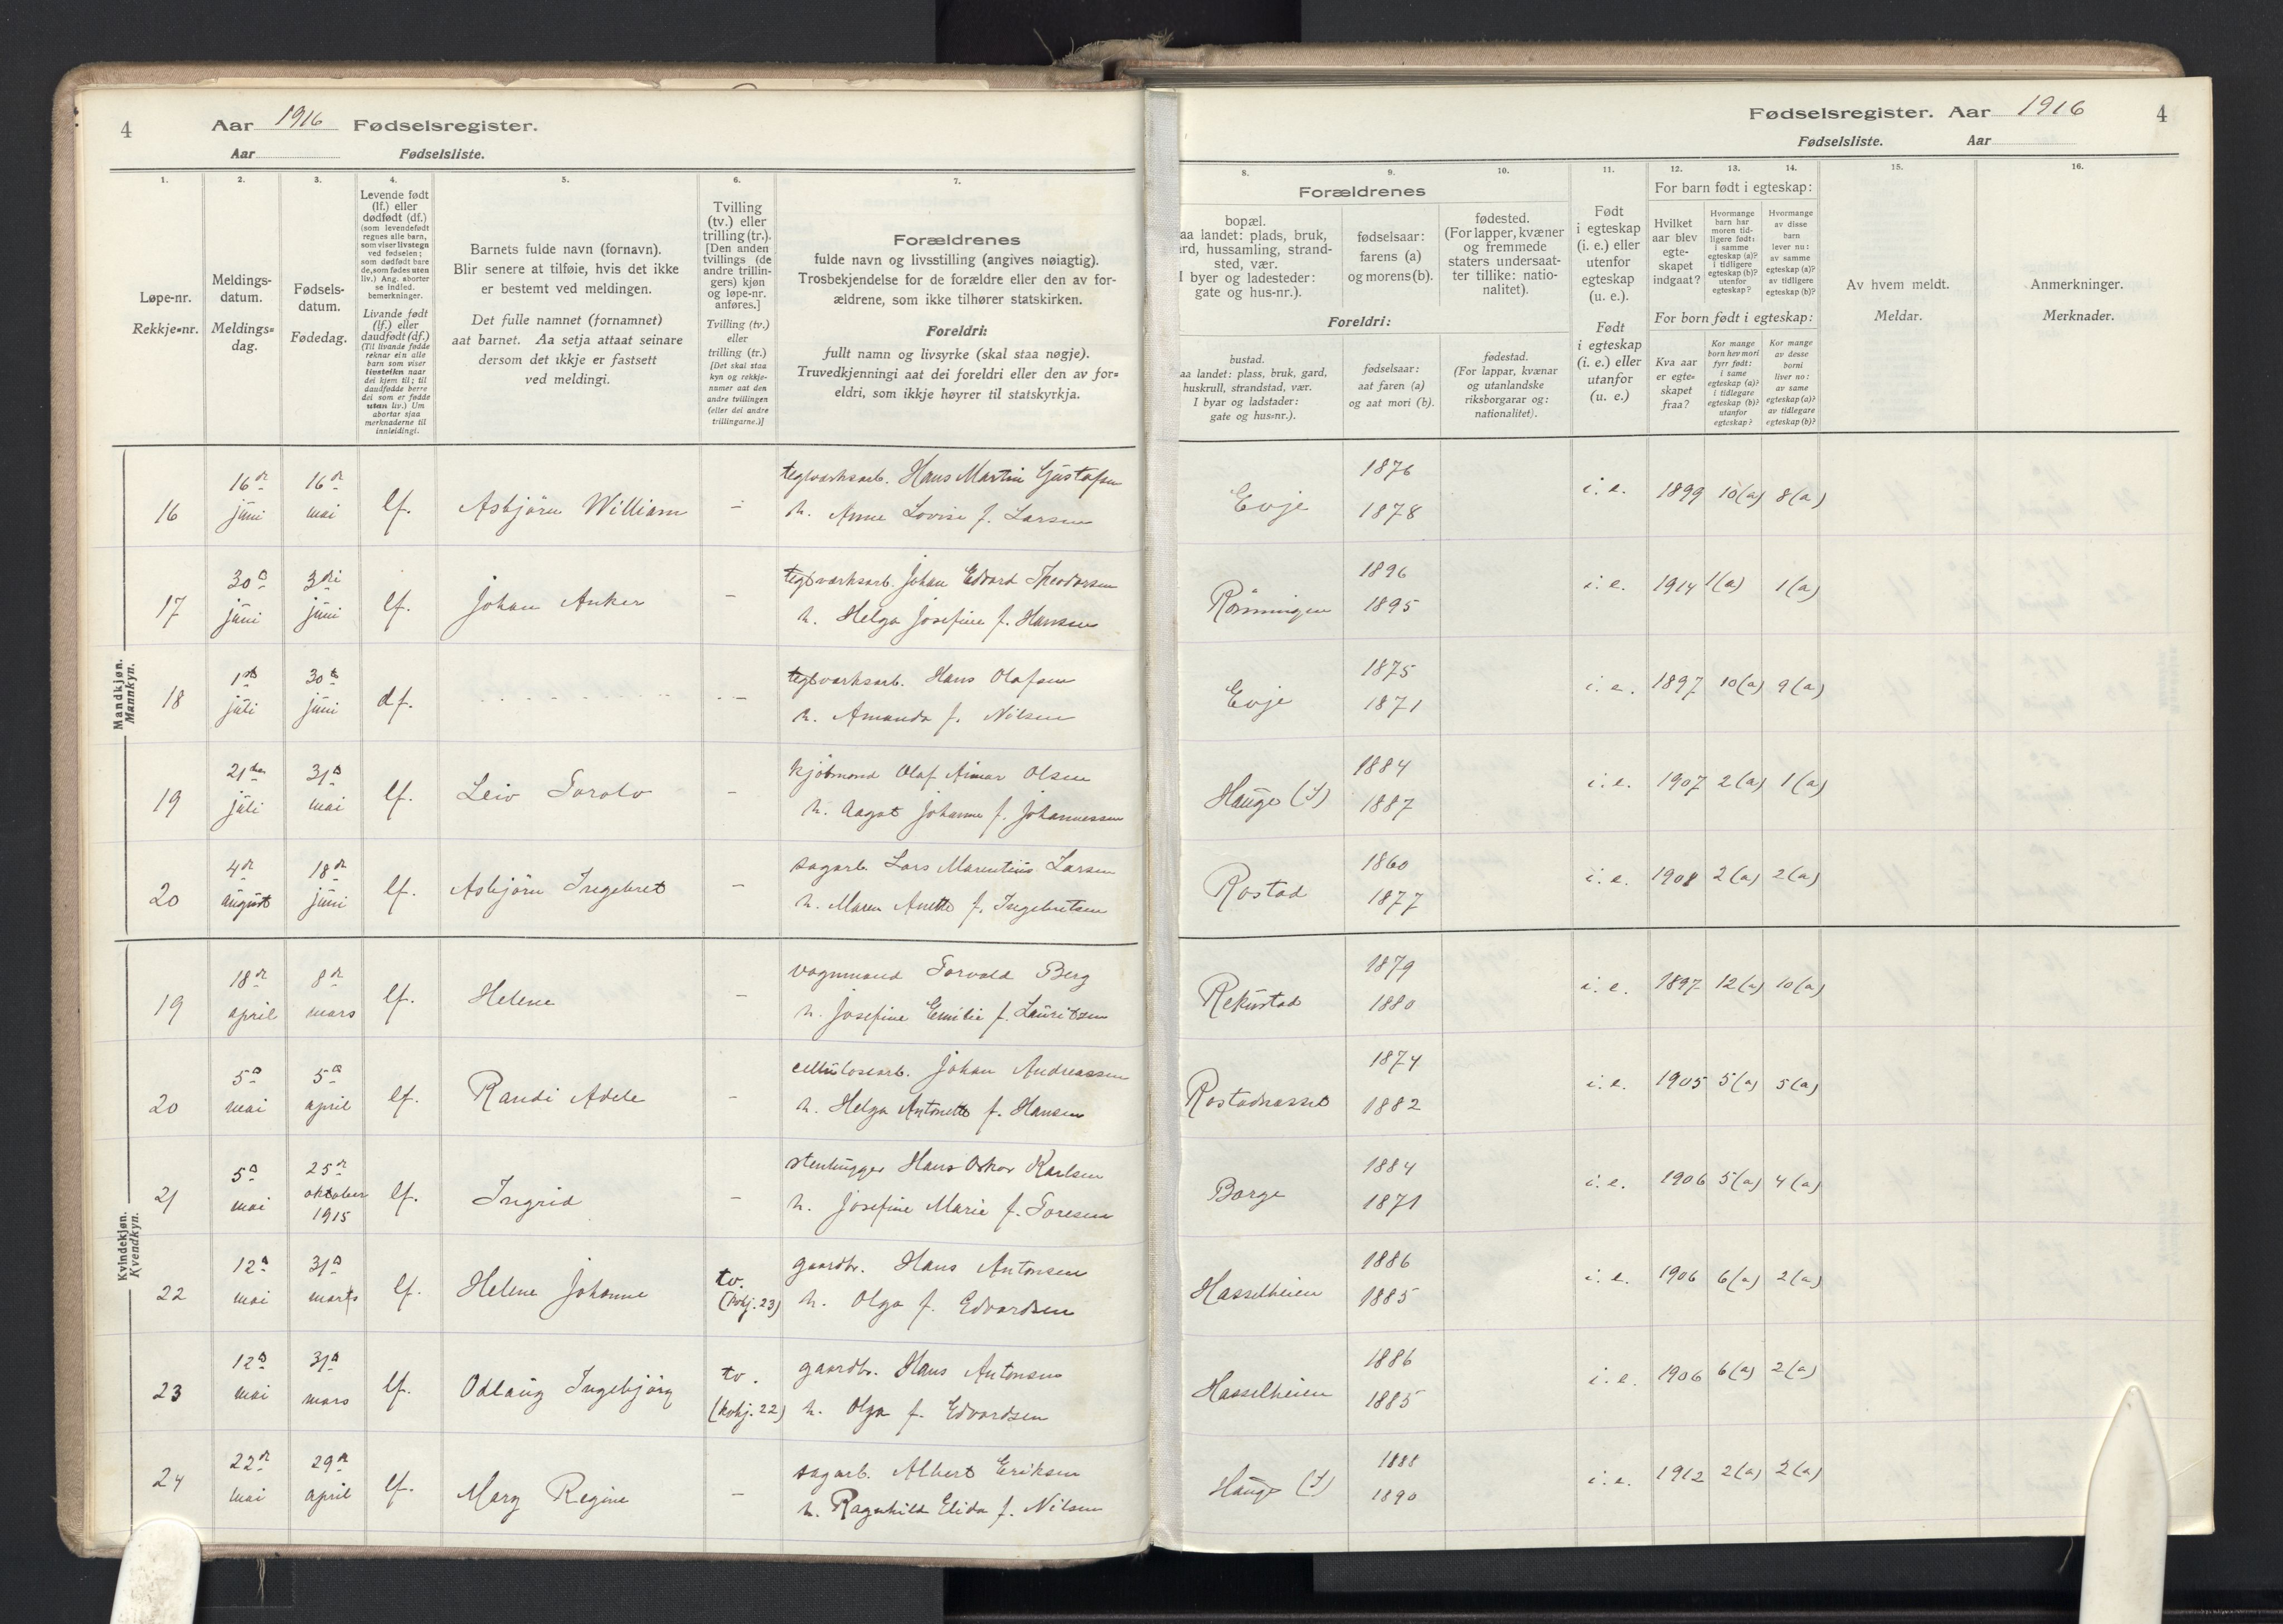 4
Aar 1916 Fødselsregister.
Aar Fødselsliste.
Fødselsregister. Aar 1916
4
Fødselsliste. Aar
1. 2. 3. 4. 5. 6. 7.
Løpe-nr.
Rekkje=nr.
Meldings-
datum.
Meldings=
dag.
Fødsels-
datum.
Fødedag.
Levende født
(lf.) eller
dødfødt (df.)
(som levendefødt
regnes alle barn,
som viser livstegn
ved fødselen;
som dødfødt bare
de, som fødes uten
liv.) Ang. aborter
se indled.
bemerkninger.
Livande født
(lf.) eller
daudfødt (df.)
(Til livande fødde
reknar ein alle
barn som viser
livsteikn naar
dei kjem til; til
daudfødde berre
dei som er fødde
utan liv.) Um
abortar sjaa
merknaderne til
innleidingi.
Barnets fulde navn (fornavn).
Blir senere at tilføie, hvis det ikke
er bestemt ved meldingen.
Det fulle namnet (fornamnet)
aat barnet. Aa setja attaat seinare
dersom det ikkje er fastsett
ved meldingi.
Tvilling
(tv.) eller
trilling (tr.).
[Den anden
tvillings (de
andre trillin-
gers) kjøn
og løpe-nr.
anføres.]
Tvilling (tv.)
eller
trilling (tr.)
[Det skal staa
kyn og rekkje-
numer aat den
andre tvillingen
(eller dei andre
trillingarne.)]
Forældrenes
fulde navn og livsstilling (angives nøiagtig).
Trosbekjendelse for de forældre eller den av for-
ældrene, som ikke tilhører statskirken.
Foreldri:
fullt namn og livsyrke (skal staa nøgje).
Truvedkjenningi aat dei foreldri eller den av for=
eldri, som ikkje høyrer til statskyrkja.
8. 9. 10. 11. 12. 13. 14. 15. 16.
Forældrenes
bopæl.
aa landet: plads, bruk,
ard, hussamling, strand-
sted, vær.
I byer og ladesteder:
gate og hus-nr.).
fødselsaar:
farens (a)
og morens (b).
fødested.
(For lapper, kvæner
og fremmede
staters undersaat-
ter tillike: natio-
nalitet).
Foreldri:
bustad.
aa landet: plass, bruk, gard,
huskrull, strandstad, vær.
I byar og ladstader:
gate og hus=nr.).
fødselsaar:
aat faren (a)
og aat mori (b).
fødestad.
(For lappar, kvænar
og utanlandske
riksborgarar og:
nationalitet).
Født
i egteskap
(i. e.) eller
utenfor
egteskap
(u. e.).
Født
i egteskap
(i. e.) eller
utanfor
(u. e.)
For barn født i egteskap:
Hvilket
aar blev
egte-
skapet
indgaat?
Hvormange
barn har
moren tid-
ligere født:
i samme
egteskap (a)?
i tidligere
egteskap (b)?
utenfor
egteskap?
Hvormange
av disse
barn
lever nu:
av samme
egteskap (a)?
av tidligere
egteskap (b)?
For born født i egteskap:
Kva aar
er egte-
skapet
fraa?
Kor mange
born hev mori
fyrr født:
i same
egteskap (a)?
i tidlegare
egteskap (b)?
utanfor
egteskap?
Kor mange
av desse
borni
liver no:
av same
egteskap (a)?
av tidlegare
egteskap (b)?
Av hvem meldt.
Meldar.
Anmerkninger.
Merknader.
Mandkjøn.
Mannkyn.
16 16de juni 16de mai lf. Asbjørn William – teglværksarb. Hans Martin Gustafsen
h. Anne Lovise f. Larsen
Evje 1876 1878 i. e. 1899 10(a) 8(a)
17 30te juni 3die juni lf. Johan Anker – teglværksarb. Johan Edvard Theodorsen
h. Helga Josefine f. Hansen
Rønningen 1896 1895 i. e. 1914 1(a) 1(a)
18 1ste juli 30te juni df. – teglværksarb. Hans Olafsen
h. Amanda f. Nilsen
Evje 1875 1871 i. e. 1897 10(a) 9(a)
19 21de juli 31te mai lf. Leiv Torolv – kjøbmand Olaf Aimar Olsen
h. Aagot Johanne f. Johannessen
Hauge (S) 1884 1887 i. e. 1907 2(a) 1(a)
20 4de august 18de juni lf. Asbjørn Ingebret – sagarb. Lars Marentius Larsen
h. Maren Anette f. Ingebretsen
Rostad 1860 1877 i. e. 1908 2(a) 2(a)
Kvindekjøn.
Kvendkyn.
19 18de april 8de mars lf. Helene – vognmand Torvald Berg
h. Josefine Emilie f. Lauritzen
Rekustad 1879 1880 i. e. 1897 12(a) 10(a)
20 5te mai 5te april lf. Randi Adele – cellulosearb. Johan Andreassen
h. Helga Antonette f. Hansen
Rostadnæsset 1874 1882 i. e. 1905 5(a) 5(a)
21 5te mai 25de oktober 1915 lf. Ingrid – stenhugger Hans Oskar Karlsen
h. Josefine Marie f. Toresen
Borge 1884 1871 i. e. 1906 5(a) 4(a)
22 12te mai 31te marts lf. Helene Johanne tv. (kvkj. 23) gaardbr. Hans Antonsen
h. Olga f. Edvardsen
Hasselheien 1886 1885 i. e. 1906 6(a) 2(a)
23 12te mai 31te mars lf. Odlaug Ingebjørg tv. (kvkj. 22) gaardbr. Hans Antonsen
h. Olga f. Edvardsen
Hasselheien 1886 1885 i. e. 1906 6(a) 2(a)
24 22de mai 29de april lf. Mary Regine – sagarb. Albert Eriksen
h. Ragnhild Elida f. Nilsen
Hauge (S) 1888 1890 i. e. 1912 2(a) 2(a)